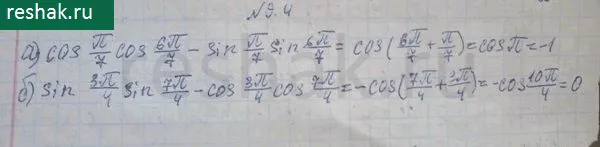 reshak.ru
N9.4
а) cos π/7 cos 6π/7 - sin π/7 sin 6π/7 = cos(6π/7 + π/7) = cosπ = -1
б) sin 3π/4 sin 7π/4 - cos 3π/4 cos 7π/4 = -cos(7π/4 + 3π/4) = -cos 10π/4 = 0
reshak.ru